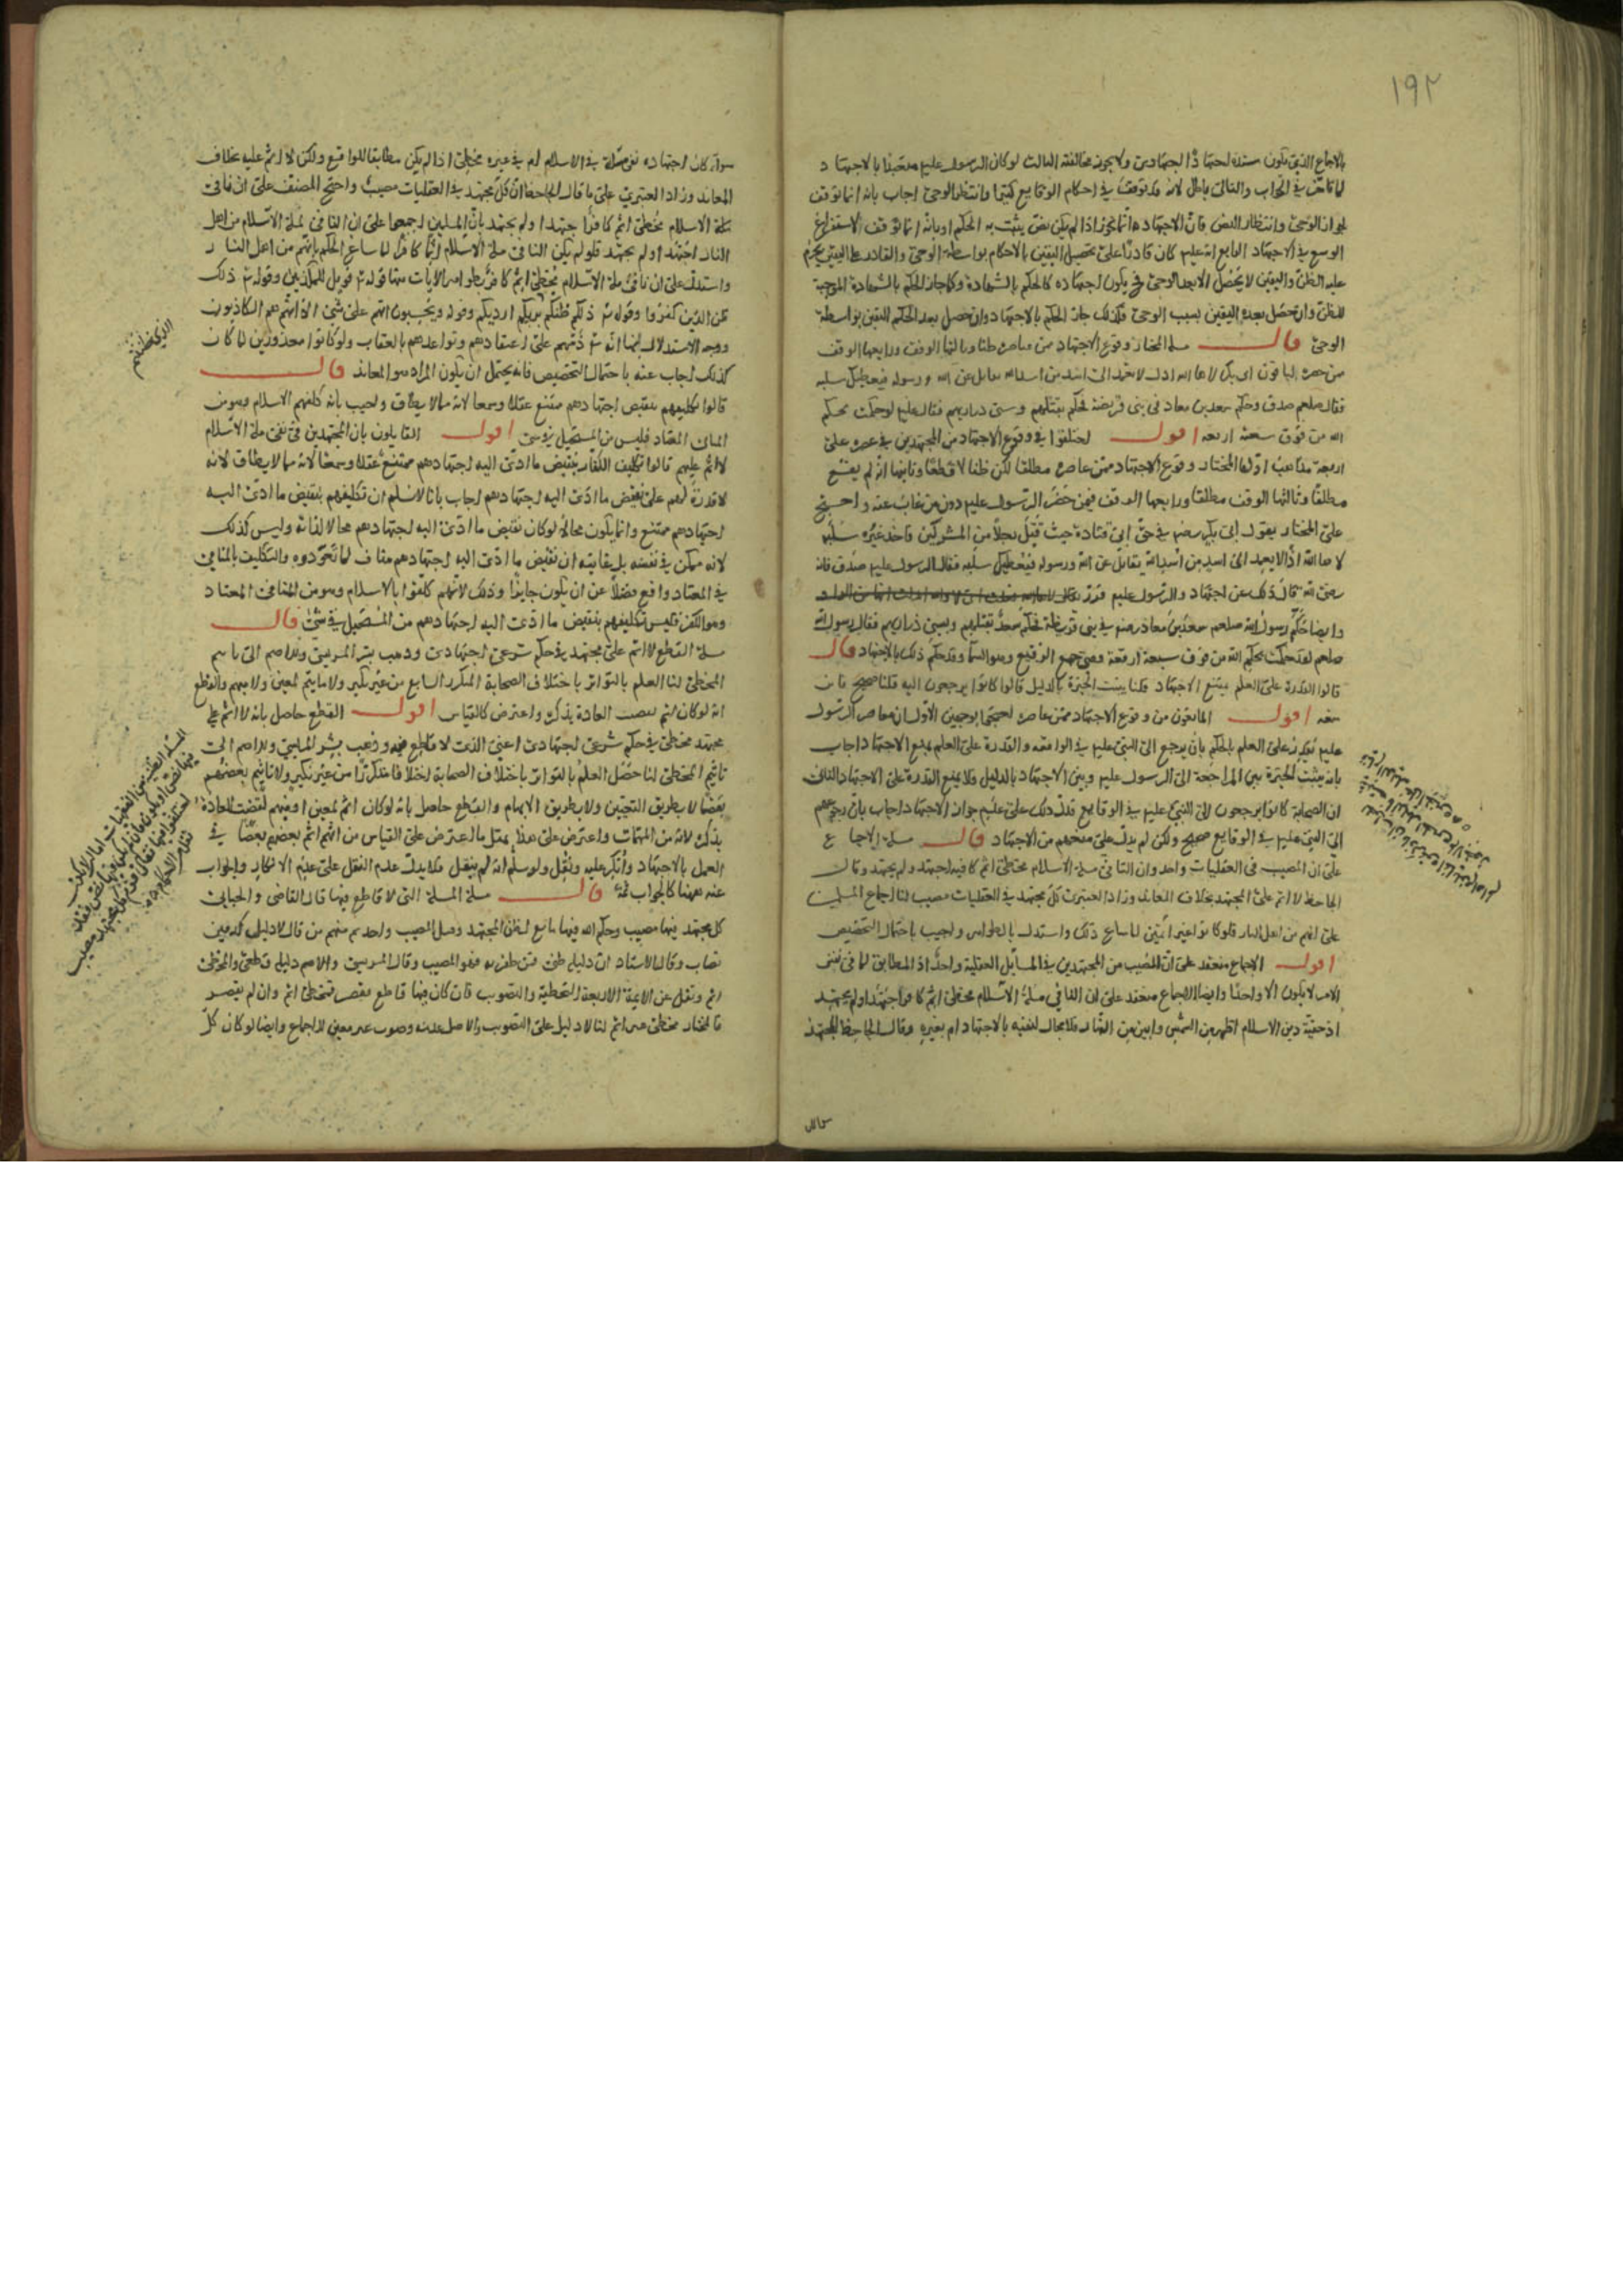 ١٩٢
بالاجماع الذي يكون سنده اجتهادًا اجتهادي ولا يجوز مخالفته الثالث لو كان الرسول عليه متعبدا بالاجتهاد
لما تأخر في الجواب والتالي باطل لانه قد توقف في احكام الوقايع كثيرا وانتظر الوحي اجاب بانه انما توقف
لجواز الوحي وانتظار النص فان الاجتهاد انما يجوز اذا لم يكن نص يثبت به الحكم او بانه انما توقف لاستفراغ
الوسع في الاجتهاد الرابع انه عليه كان قادرًا على تحصيل اليقين بالاحكام بواسطة الوحي والقادر على اليقين يحرم
عليه الظن واليقين لا يحصل الا بعد الوحي يكون اجتهاده كالحكم بالشهادة وكما جاز الحكم بالشهادة الموجبة
للظن وان حصل بعده اليقين بسبب الوحي فكذلك جاز الحكم بالاجتهاد وان حصل بعد الحكم اليقين بواسطة
الوحي قال مسلة المختار وقوع الاجتهاد ممن عاصره ظنا وثالثها الوقف ورابعها الوقف
فقال صلعم صدق وحكم سعد بن معاذ في بني قريظة فحكم بقتلهم وسبي ذراريهم فقال عليه لقد حكمت بحكم
الله من فوق سبعة ارقعة اقول اختلفوا في وقوع الاجتهاد من المجتهدين في عصره على
اربعة مذاهب اولها المختار وقوع الاجتهاد ممن عاصره مطلقا لكن ظنا لا قطعا وثانيها انه لم يقع
مطلقًا وثالثها الوقف مطلقا ورابعها الوقف فيمن حضر الرسول عليه دون من غاب عنه واحتج
على المختار بقول ابي بكر رضه في حق ابي قتادة حيث قتل رجلاً من المشركين فاخذ غيره سلبه
لاها الله اذًا لا يعمد الى اسد من اسد الله يقاتل عن الله ورسوله فيعطيك سلبه فقال الرسول عليه صدق فانه
رضي الله قال ذلك عن اجتهاد والرسول عليه قرره
وايضا حكّم رسول الله صلعم سعد بن معاذ رضه في بني قريظة فحكم سعد بقتلهم وبسبي ذراريهم فقال رسول الله
صلعم لقد حكمت بحكم الله من فوق سبعة ارقعة وهي جمع الرقيع وهو السما وقد حكم ذلك بالاجتهاد قال
قالوا القدرة على العلم يمنع الاجتهاد قلنا يثبت الخيرة بالدليل قالوا كانوا يرجعون اليه قلنا صحيح فاين
منعه اقول المانعون من وقوع الاجتهاد ممن عاصره احتجوا بوجهين الاول ان معاصر الرسول
عليه يقدر على العلم بالحكم بان يرجع الى النبي عليه في الواقعه والقدرة على العلم يمنع الاجتهاد اجاب
بانه يثبت الخيرة بين المراجعة الى الرسول عليه وبين الاجتهاد بالدليل فلا يمنع القدرة على الاجتهاد الثاني
ان الصحابة كانوا يرجعون الى النبي عليه في الوقايع فدل ذلك على عدم جواز الاجتهاد اجاب بان رجوعهم
الى النبي عليه في الوقايع صحيح ولكن لم يدل على منعهم من الاجتهاد قال مسلة الاجماع
على ان المصيب في العقليات واحد وان النافي ملة الاسلام مخطئ آثم كافر اجتهد او لم يجتهد وقال
الجاحظ لا اثم على المجتهد بخلاف المعاند وزاد العنبري كل مجتهد في العقليات مصيب لنا اجماع المسلمين
على انهم من اهل النار فلو كانوا غير آثمين لما ساغ ذلك واستدل بالظواهر واجيب باحتمال التخصيص
اقول الاجماع منعقد على ان المصيب من المجتهدين في المسائل العقلية واحد اذ المطابق لما في نفس
الامر لا يكون الا واحدًا وايضا الاجماع منعقد على ان النافي ملة الاسلام مخطئ آثم كافر اجتهد او لم يجتهد
اذ حقية دين الاسلام اظهر من الشمس وابين من النهار فلا مجال لنفيه بالاجتهاد ام بغيره وقال الجاحظ المجتهد
سواء كان اجتهاده نفي ملة الاسلام ام في غيره مخطئ اذا لم يكن مطابقا للواقع ولكن لا اثم عليه بخلاف
المعاند وزاد العنبري على ما قال الجاحظ ان كل مجتهد في العقليات مصيب واحتج المصنف على ان نافي
ملة الاسلام مخطئ آثم كافر اجتهد او لم يجتهد بان المسلمين اجمعوا على ان النافي لملة الاسلام من اهل
النار اجتهد او لم يجتهد فلو لم يكن النافي ملة الاسلام آثما كافرا لما ساغ الحكم بانهم من اهل النار
واستدل على ان نافي ملة الاسلام مخطئ آثم كافر بظواهر الآيات منها قوله فويل للمكذبين وقوله ذلك
ظن الذين كفروا وقوله ذلكم ظنكم بربكم ارديكم وقوله ويحسبون انهم على شئ الا انهم هم الكاذبون
ووجه الاستدلال بها انه ذمهم على اعتقادهم وتواعدهم بالعقاب ولو كانوا معذورين لما كان
كذلك اجاب عنه باحتمال التخصيص فانه يحتمل ان يكون المراد هو المعاند قال
قالوا تكليفهم بنقيض اجتهادهم ممتنع عقلا وسمعا لانه مما لا يطاق واجيب بانه كلفهم الاسلام وهو من
المنافي المعتاد فليس من المستحيل في شئ اقول القايلون بان المجتهدين في نفي ملة الاسلام
لا اثم عليهم قالوا تكليف الكفار بنقيض ما ادى اليه اجتهادهم ممتنع عقلا وسمعا لانه مما لا يطاق لانه
لا قدرة لهم على نقيض ما ادى اليه اجتهادهم اجاب بانا لا نسلم ان تكليفهم بنقيض ما ادى اليه
اجتهادهم ممتنع وانما يكون محالا لو كان نقيض ما ادى اليه اجتهادهم محالا لذاته وليس كذلك
لانه ممكن في نفسه بل غايته ان نقيض ما ادى اليه اجتهادهم مناف لما تعودوه والتكليف بالمنافي
في المعتاد واقع فضلا عن ان يكون جايزا وذلك لانهم كلفوا بالاسلام وهو من المنافي المعتاد
وهو الكفر فليس تكليفهم بنقيض ما ادى اليه اجتهادهم من المستحيل في شئ قال
مسلة القطع لا اثم على مجتهد في حكم شرعي اجتهادي وذهب بشر المريسي والاصم الى تاثيم
المخطئ لنا العلم بالتواتر باختلاف الصحابة المتكرر الشايع من غير نكير ولا تاثيم لمعين ولا مبهم والقطع
انه لو كان اثم لقضت العادة بذكره واعترض كالقياس اقول القطع حاصل بانه لا اثم على
مجتهد مخطئ في حكم شرعي اجتهادي اعني الذي لا قاطع فيه وذهب بشر المريسي والاصم الى
تاثيم المخطئ لنا حصل العلم بالتواتر باختلاف الصحابة اختلافا متكررا من غير نكير ولا تاثيم بعضهم
بعضا لا بطريق التعيين ولا بطريق الابهام والقطع حاصل بانه لو كان اثم لمعين او مبهم لقضت العادة
بذكره لانه من المهمات واعترض على هذا بمثل ما اعترض على القياس من انهم اثم بعضهم بعضا في
العمل بالاجتهاد وانكر عليه ونقل ولو سلم انه لم ينقل فلا يدل عدم النقل على عدم الانكار والجواب
عنه ههنا كالجواب ثمة قال مسلة المسلة التي لا قاطع فيها قال القاضي والجبائي
كل مجتهد فيها مصيب وحكم الله فيها تابع لظن المجتهد وقيل المصيب واحد ثم منهم من قال لا دليل كدفين
يصاب وقال الاستاد ان دليله ظني فمن ظفر به فهو المصيب وقال المريسي والاصم دليله قطعي والمخطئ
آثم ونقل عن الائمة الاربعة التخطية والتصويب فان كان فيها قاطع فقصر فمخطئ آثم وان لم يقصر
فالمختار مخطئ غير آثم لنا لا دليل على التصويب والاصل عدمه وصوب غير معين للاجماع وايضا لو كان كل